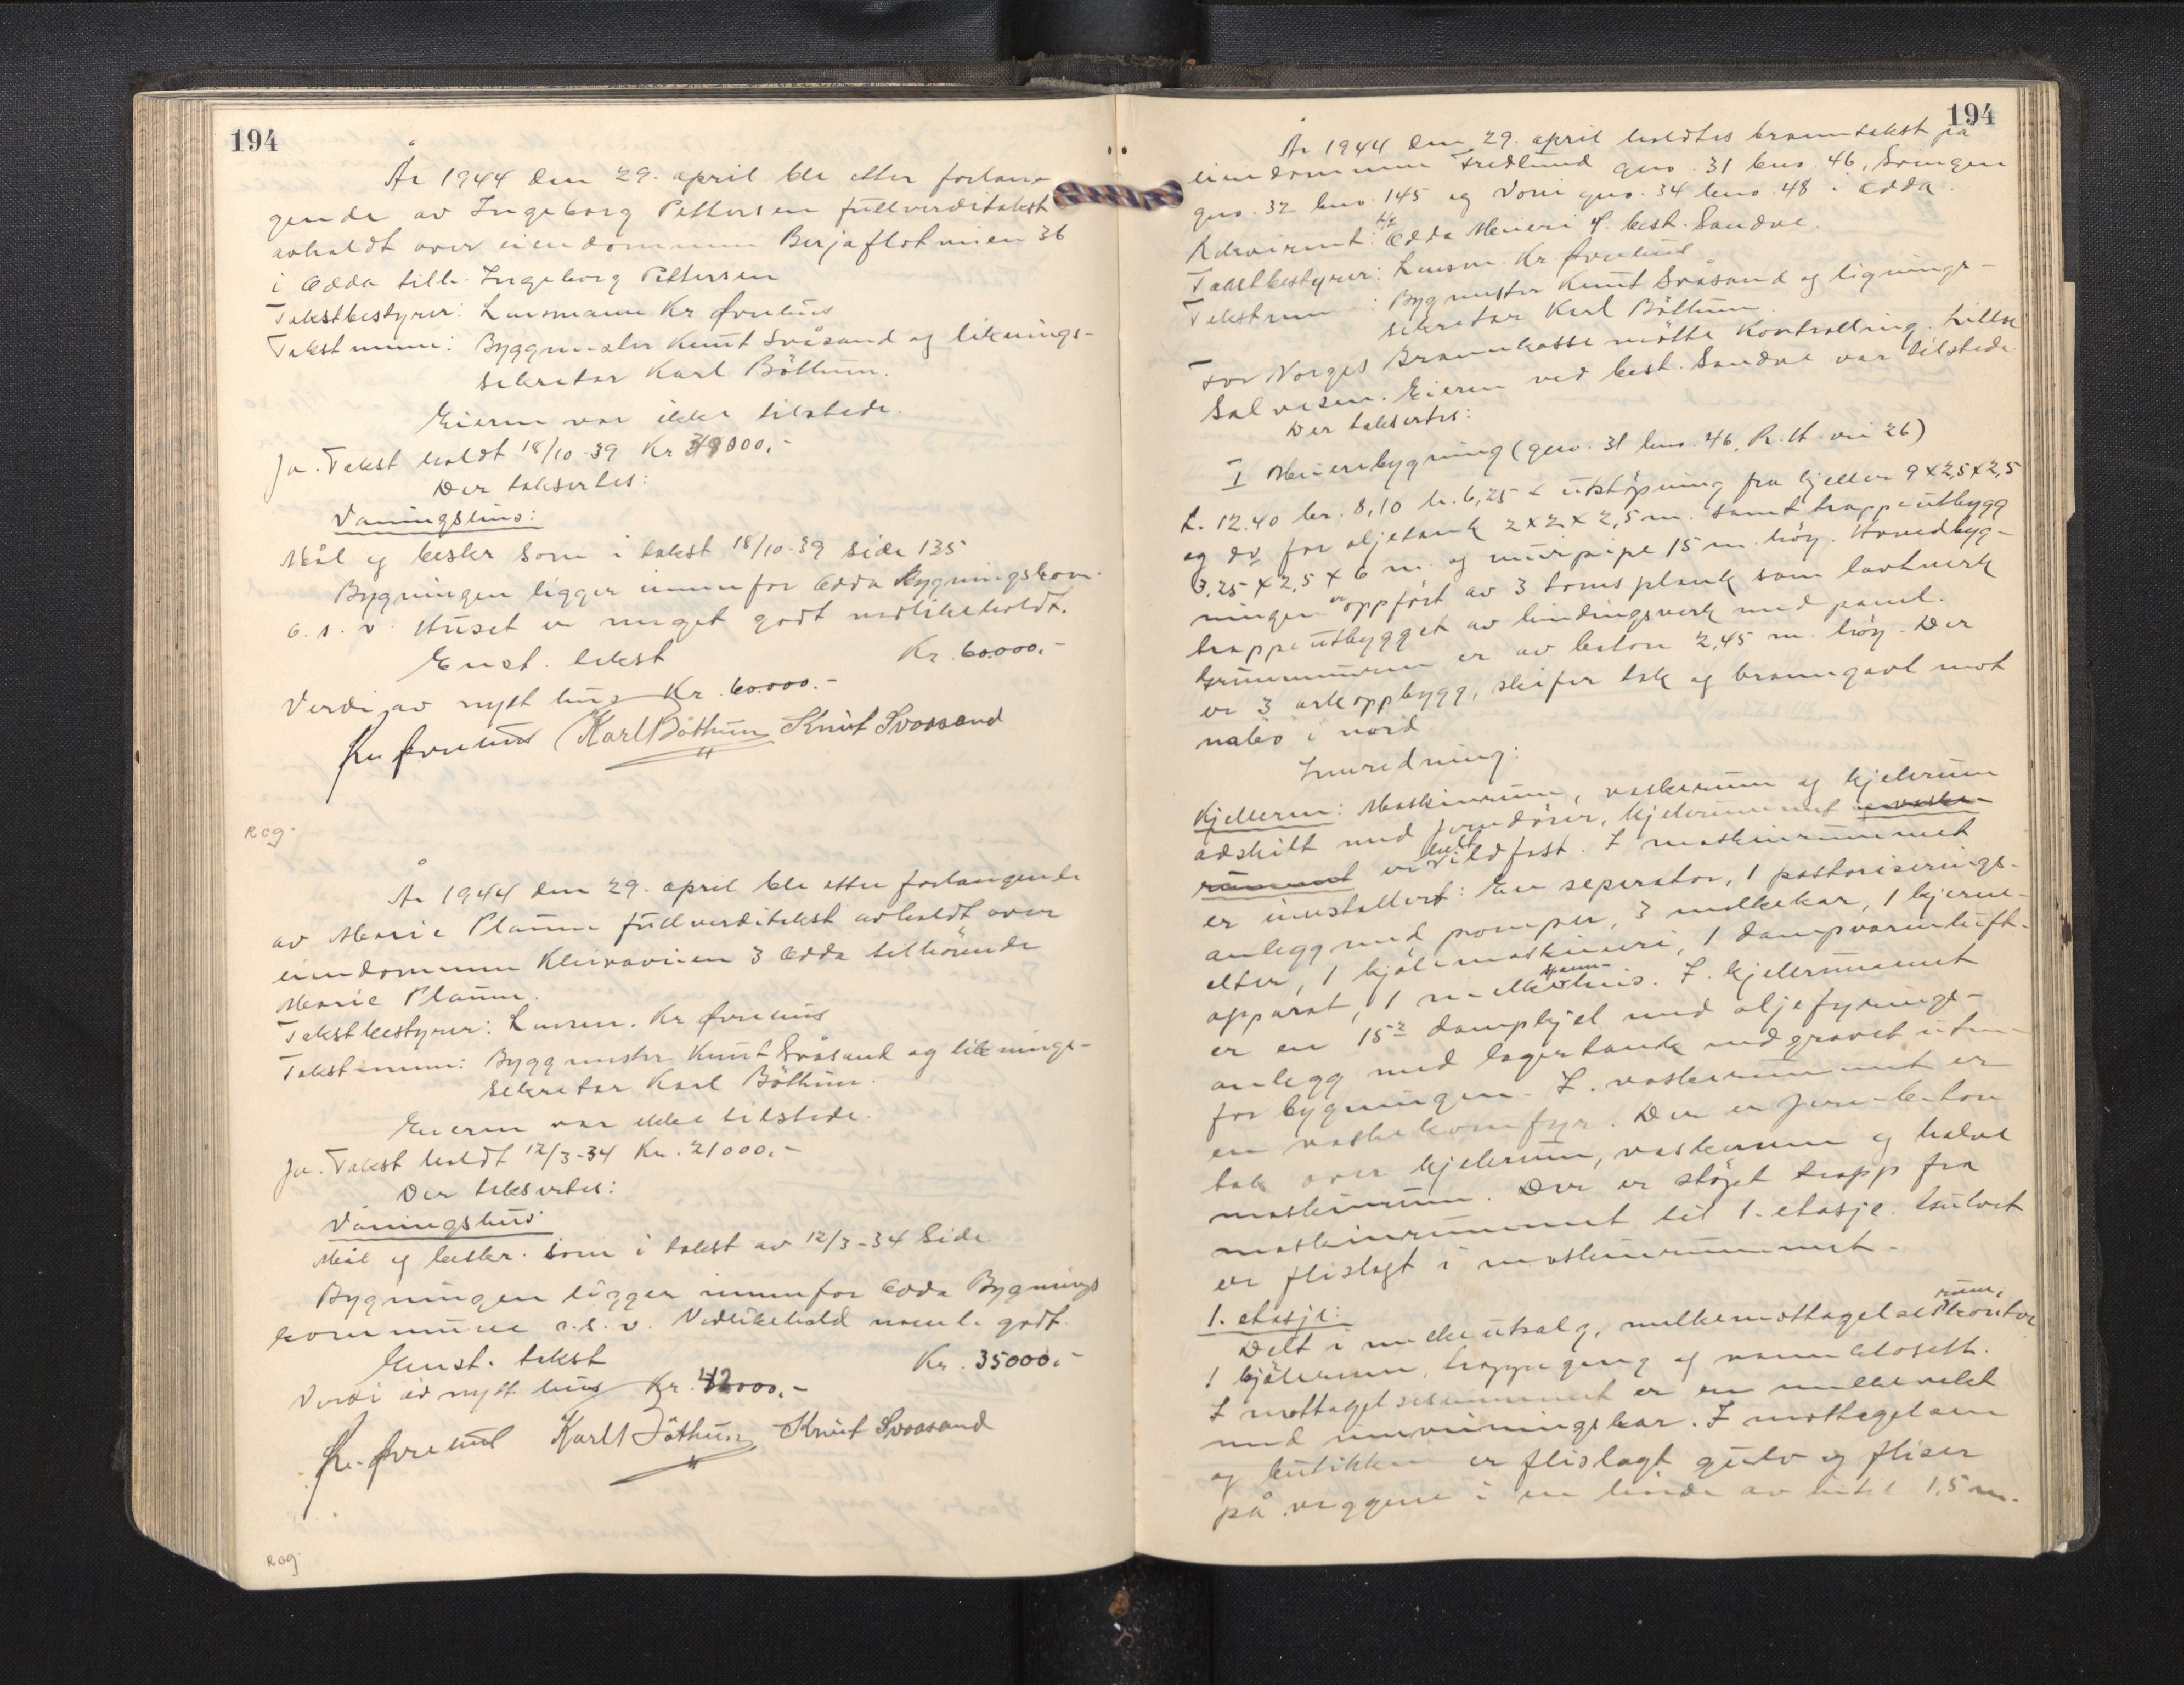 194
År 1944 den 29. april ble etter forlan-
gende av Ingeborg Pettersen fullverditakst
avholdt over eiendommen Berjaflotveien 36
i Odda tilh. Ingeborg Pettersen
Takstbestyrer: Lensmann Kr Øvrehus
Takstmenn: Byggmester Knut Svåsand og liknings-
sekretær Karl Bøthun.
Eieren var ikke tilstede.
Ja. Takst holdt 18/10-39 Kr 49000,-
Der taksertes:
Våningshus:
Mål og beskr som i takst 18/10-39 side 135
Bygningen ligger innenfor Odda Bygningskom.
o.s.v. Huset er meget godt vedlikeholdt.
Enst. takst Kr. 60.000.-
Verdi av nytt hus Kr. 60.000.-
Kr Øvrehus Karl Bøthun Knut Svaasand
Reg.
År 1944 den 29. april ble etter forlangende
av Marie Plaum fullverditakst avholdt over
eiendommen Kleivaveien 3 Odda tilhørende
Marie Plaum.
Takstbestyrer: Lensm. Kr Øvrehus
Takstmenn: Byggmester Knut Svåsand og liknings-
sekretær Karl Bøthun.
Eieren var ikke tilstede.
Ja. Takst holdt 12/3-34 Kr. 21000.-
Der taksertes:
Våningshus
Mål og beskr. som i takst av 12/3-34 Side
Bygningen ligger innenfor Odda Bygnings
kommune o.s.v. Vedlikehold noenl. godt.
Enst. takst Kr. 35000.-
Verdi av nytt hus Kr. 42000.-
Kr. Øvrehus Karl Bøthun Knut Svaasand
Reg.
194
År 1944 den 29. april holdtes branntakst på
eiendommen Fredlund gno. 31 bno. 46, Svingen
gno. 32 bno. 145 og Voni gno. 34 bno. 48 i Odda.
Rekvirent: Odda Meieri v/ best. Sandve.
Takstbestyrer: Lensm. Kr. Øvrehus
Takstmenn: Bygmester Knut Svåsand og lignings-
sekretær Karl Bøthun.
For Norges Brannkasse møtte Kontrolling. Lilloe
Salvesen. Eieren ved best. Sandve var tilstede.
Der taksertes:
I Meieribygning (gno. 31 bno. 46, R. H. vei 26)
L. 12.40 br. 8,10 h. 6,25 + utstøpning fra kjeller 9 x 2,5 x 2,5
og do for oljetank 2 x 2 x 2,5 m. samt trappeutbygg
3.25 x 2,5 x 6 m. og murpipe 15 m. høy. Hovedbyg-
ningen er oppført av 3 toms plank som laftverk
trappeutbygget av bindingsverk med panel.
Grunnmuren er av beton 2,45 m. høy. Der
er 3 arkoppbygg, skifer tak og branngavl mot
nabo i nord
Innredning:
Kjelleren: Maskinrum, vaskerum og kjelerum
adskilt med jerndører, kjelerummet og vaske-
rummet er helt ildfast. I maskinrummet
er innstallert: En seperator, 1 pastoriserings-
anlegg med pomper, 3 melkekar, 1 kjerne-
elter, 1 kjølemaskineri, 1 dampvarmluft-
apparat, 1 melkespannhus. I kjelerummet
er en 15² dampkjel med oljefyrings-
anlegg med lagertank nedgravet uten-
for bygningen. I vaskerummet er
en vaskekomfyr. Der er jern-beton
tak over kjelerum, vaskerum og halve
maskinrum. Der er støpt trapp fra
maskinrummet til 1. etasje. Gulvet
er flislagt i maskinrummet.
1. etasje:
Delt i melkeutsalg, melkemottagelsesrum, kontor
1 kjølerum, trappegang og vannclosett.
I mottagelsesrummet er en melkevekt
med innveiningskar. I mottagelsen
og butikken er flislagt gulv og fliser
på veggene i en høide av 1,5 m.